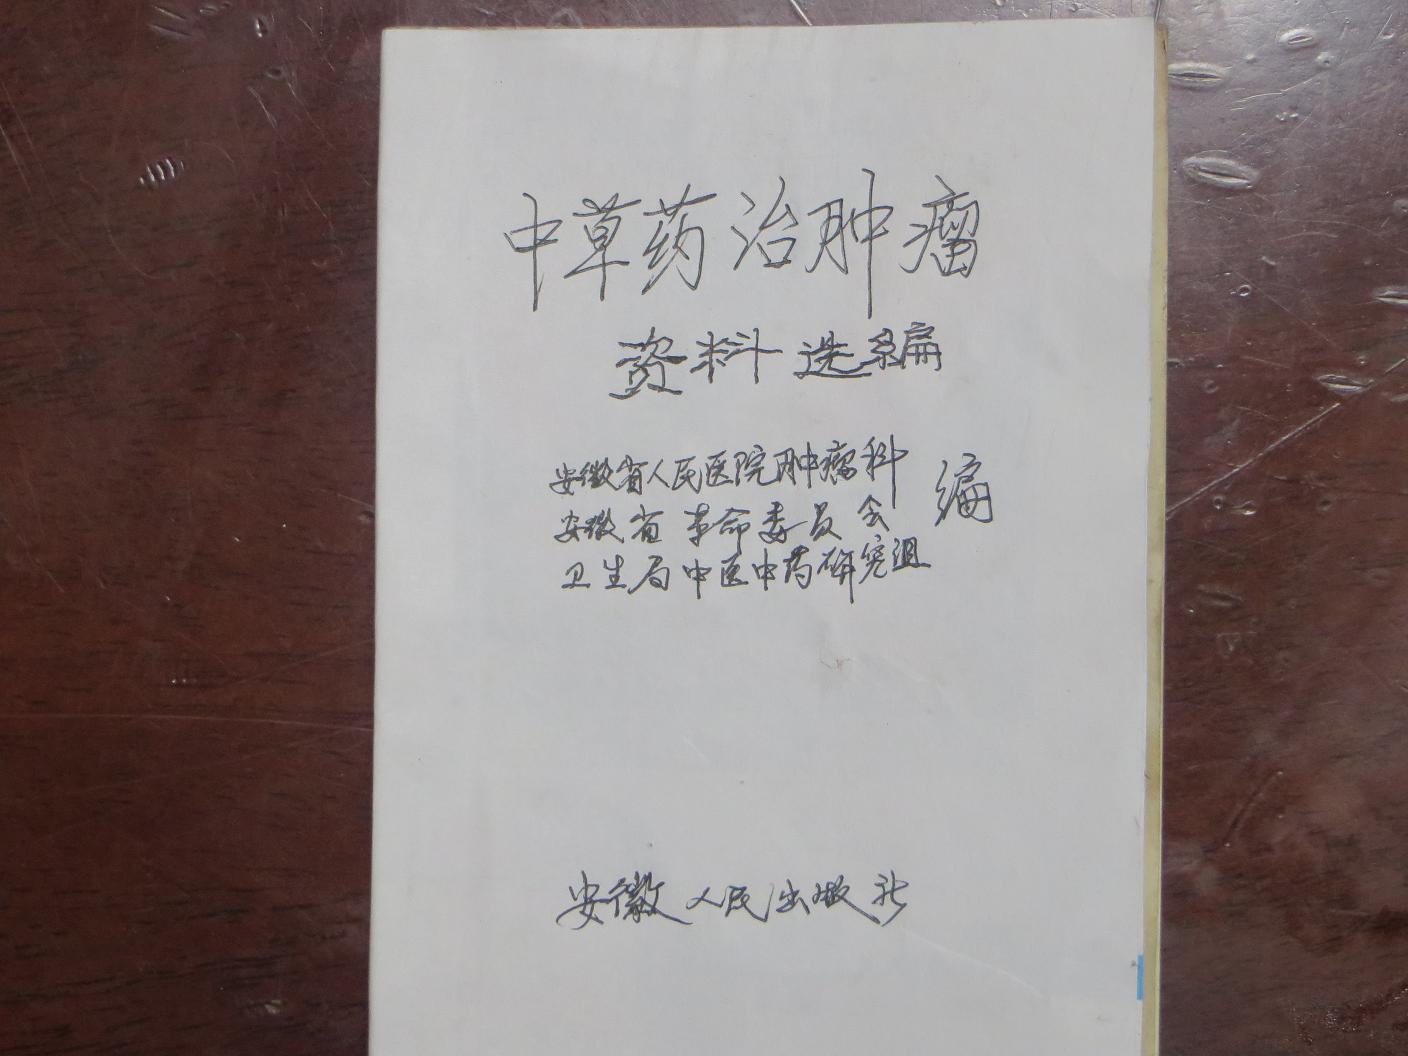 中草药治肿瘤
资料选编
安徽省人民医院肿瘤科
安徽省革命委员会
卫生局中医中药研究组
编
安徽人民出版社